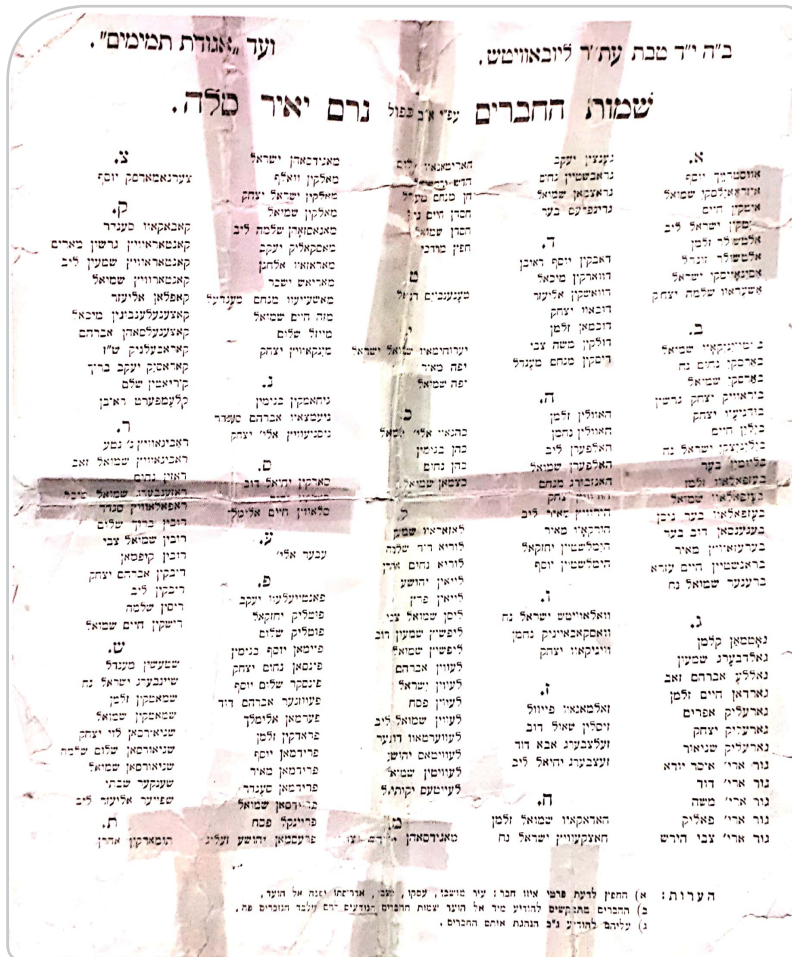 ב"ה י"ד טבת עת"ר ליובאוויטש.
ועד „אגודת תמימים".
שמות החברים עפ"י א"ב כפול נרם יאיר סלה.
א.
אווסטרמך יוסף
שמואל
איטקין חיים
ישראל ליב
אלטשולר זלמן
אלטשולר זונדל
ישראל
אשעראוו שלמה יצחק
ב.
שמואל
בארסקי נחום נח
בארסקי שמואל
יצחק גרשון
יצחק
ביילין חיים
ישראל נח
בער
בעזפאלאוו זלמן
בעזפאלאוו שמואל
בעזפאלאוו בער ניסן
בענענסאן דוב בער
בערעזאוויץ מאיר
בראנשטיין חיים עזרא
ברענער שמואל נח
ג.
גאטמאן קלמן
גאלדבערג שמעון
גאללע אברהם זאב
גארדאן חיים זלמן
גארעליק אפרים
גארעליק יצחק
גארעליק שניאור
גור ארי' איסר יודא
גור ארי' דוד
גור ארי' משה
גור ארי' פאליק
גור ארי' צבי הירש
גענצין יעקב
גראבשטיין נחום
גראצמאן שמואל
גרינפיעס בער
ד.
דאבקין יוסף ראובן
דווארקין מיכאל
דוואשקין אליעזר
דובאוו יצחק
דוכמאן זלמן
דולקין משה צבי
דיסקין מנחם מענדל
ה.
האוולין זלמן
האוולין נחמן
האלפערן ליב
האלפערן שמואל
האנזבורג מנחם
יצחק
הורוויץ מאיר ליב
הורקאוו מאיר
הימלשטיין יחזקאל
הימלשטיין יוסף
ו.
וואלאוויטש ישראל נח
וואסקאבאיניק נחמן
וויניקאוו יצחק
ז.
זאלמאנאוו פייוול
זיסלין שאול דוב
זעלצבערג אבא דוד
זעצבערג יחיאל ליב
ח.
האדאקאוו שמואל זלמן
חאצקעוויץ ישראל נח
הארימאנאוו
חן מנחם מענדל
חסדן חיים
חסדן שמואל
חפץ מרדכי
ט.
דניאל
י.
ירוחימאוו שמואל ישראל
יפה מאיר
יפה שמואל
כ.
כהנאוו אלי'
כהן בנימין
כהן נחום
כצמאן שמואל
ל.
לאזאראוו שמעון
לוריא דוד שלמה
לוריא נחום
לייאין יהושע
לייאין פרץ
ליסן שמואל צבי
ליפשיץ שמעון דוב
ליפשיץ שמואל
לעווין אברהם
לעווין ישראל
לעווין פסח
לעווין שמואל ליב
לעווערטאוו
לעוויטאס יהושע
לעוויטין שמואל
לעוויטעס יקותיאל
מ.
מאנידסאהן
מאנידסאהן ישראל
מאלקין וואלף
מאלקין ישראל יצחק
מאלקין שמואל
שלמה ליב
מאסקאליק יעקב
מאראזאוו אלחנן
מאריאש ישכר
מאשעיעוו מנחם מענדעל
מזה חיים שמואל
מייזל שלום
יצחק
נ.
ניחאמקין בנימין
ניעמצאוו אברהם סענדר
אלי' יצחק
ס.
סארקין יחיאל דוב
סלאווין חיים אלימלך
ע.
עבער אלי'
פ.
יעקב
פוטליק יחזקאל
פוטליק שלום
פיימאן יוסף בנימין
פינסאן נחום יצחק
פינסקר שלום יוסף
פעווזנער אברהם דוד
פערמאן אלימלך
פראדקין זלמן
פרידמאן יוסף
פרידמאן מאיר
פרידמאן סענדר
פרידמאן שמואל
פריינקל פסח
פרעסמאן יהושע זעליג
צ.
צערנאמארסק יוסף
ק.
קאבאקאוו סענדר
קאנטאראוויץ גרשון מארים
קאנטאראוויץ שמעון ליב
קאנטאראוויץ שמואל
קאפלאן אליעזר
מיכאל
אברהם
קאראבעלניק ש"ז
קאראסיק יעקב ברוך
קוריאטין שלם
קלעמפערט ראובן
ר.
ראבינאוויץ נ' נטע
ראבינאוויץ שמואל זאב
ראזין נחום
ראזענבערג שמואל מיכל
ראפאלאוויץ סנדר
רובין ברוך שלום
רובין שמואל צבי
רובין קופמאן
ריבקין אברהם יצחק
ריבקין ליב
ריסין שלמה
רישקין חיים שמואל
ש.
שטעשין מענדל
שיינבערג ישראל נח
שמאטקין זלמן
שמאטקין שמואל
שניאורסאן לוי יצחק
שניאורסאן שלום שלמה
שניאורסאן שמואל
שענקער שבתי
שפייער אליעזר ליב
ת.
תומארקין אהרן
הערות: א) החפץ לדעת פרטי איזו חבר: עיר מושבו, עסקו, מצבו, אדריסתו יפנה אל הועד.
ב) החברים מתבקשים להודיע מיד אל הועד שמות החברים הנודעים להם מלבד הנזכרים פה.
ג) עליהם להודיע ג"כ הנהגת אותם החברים.